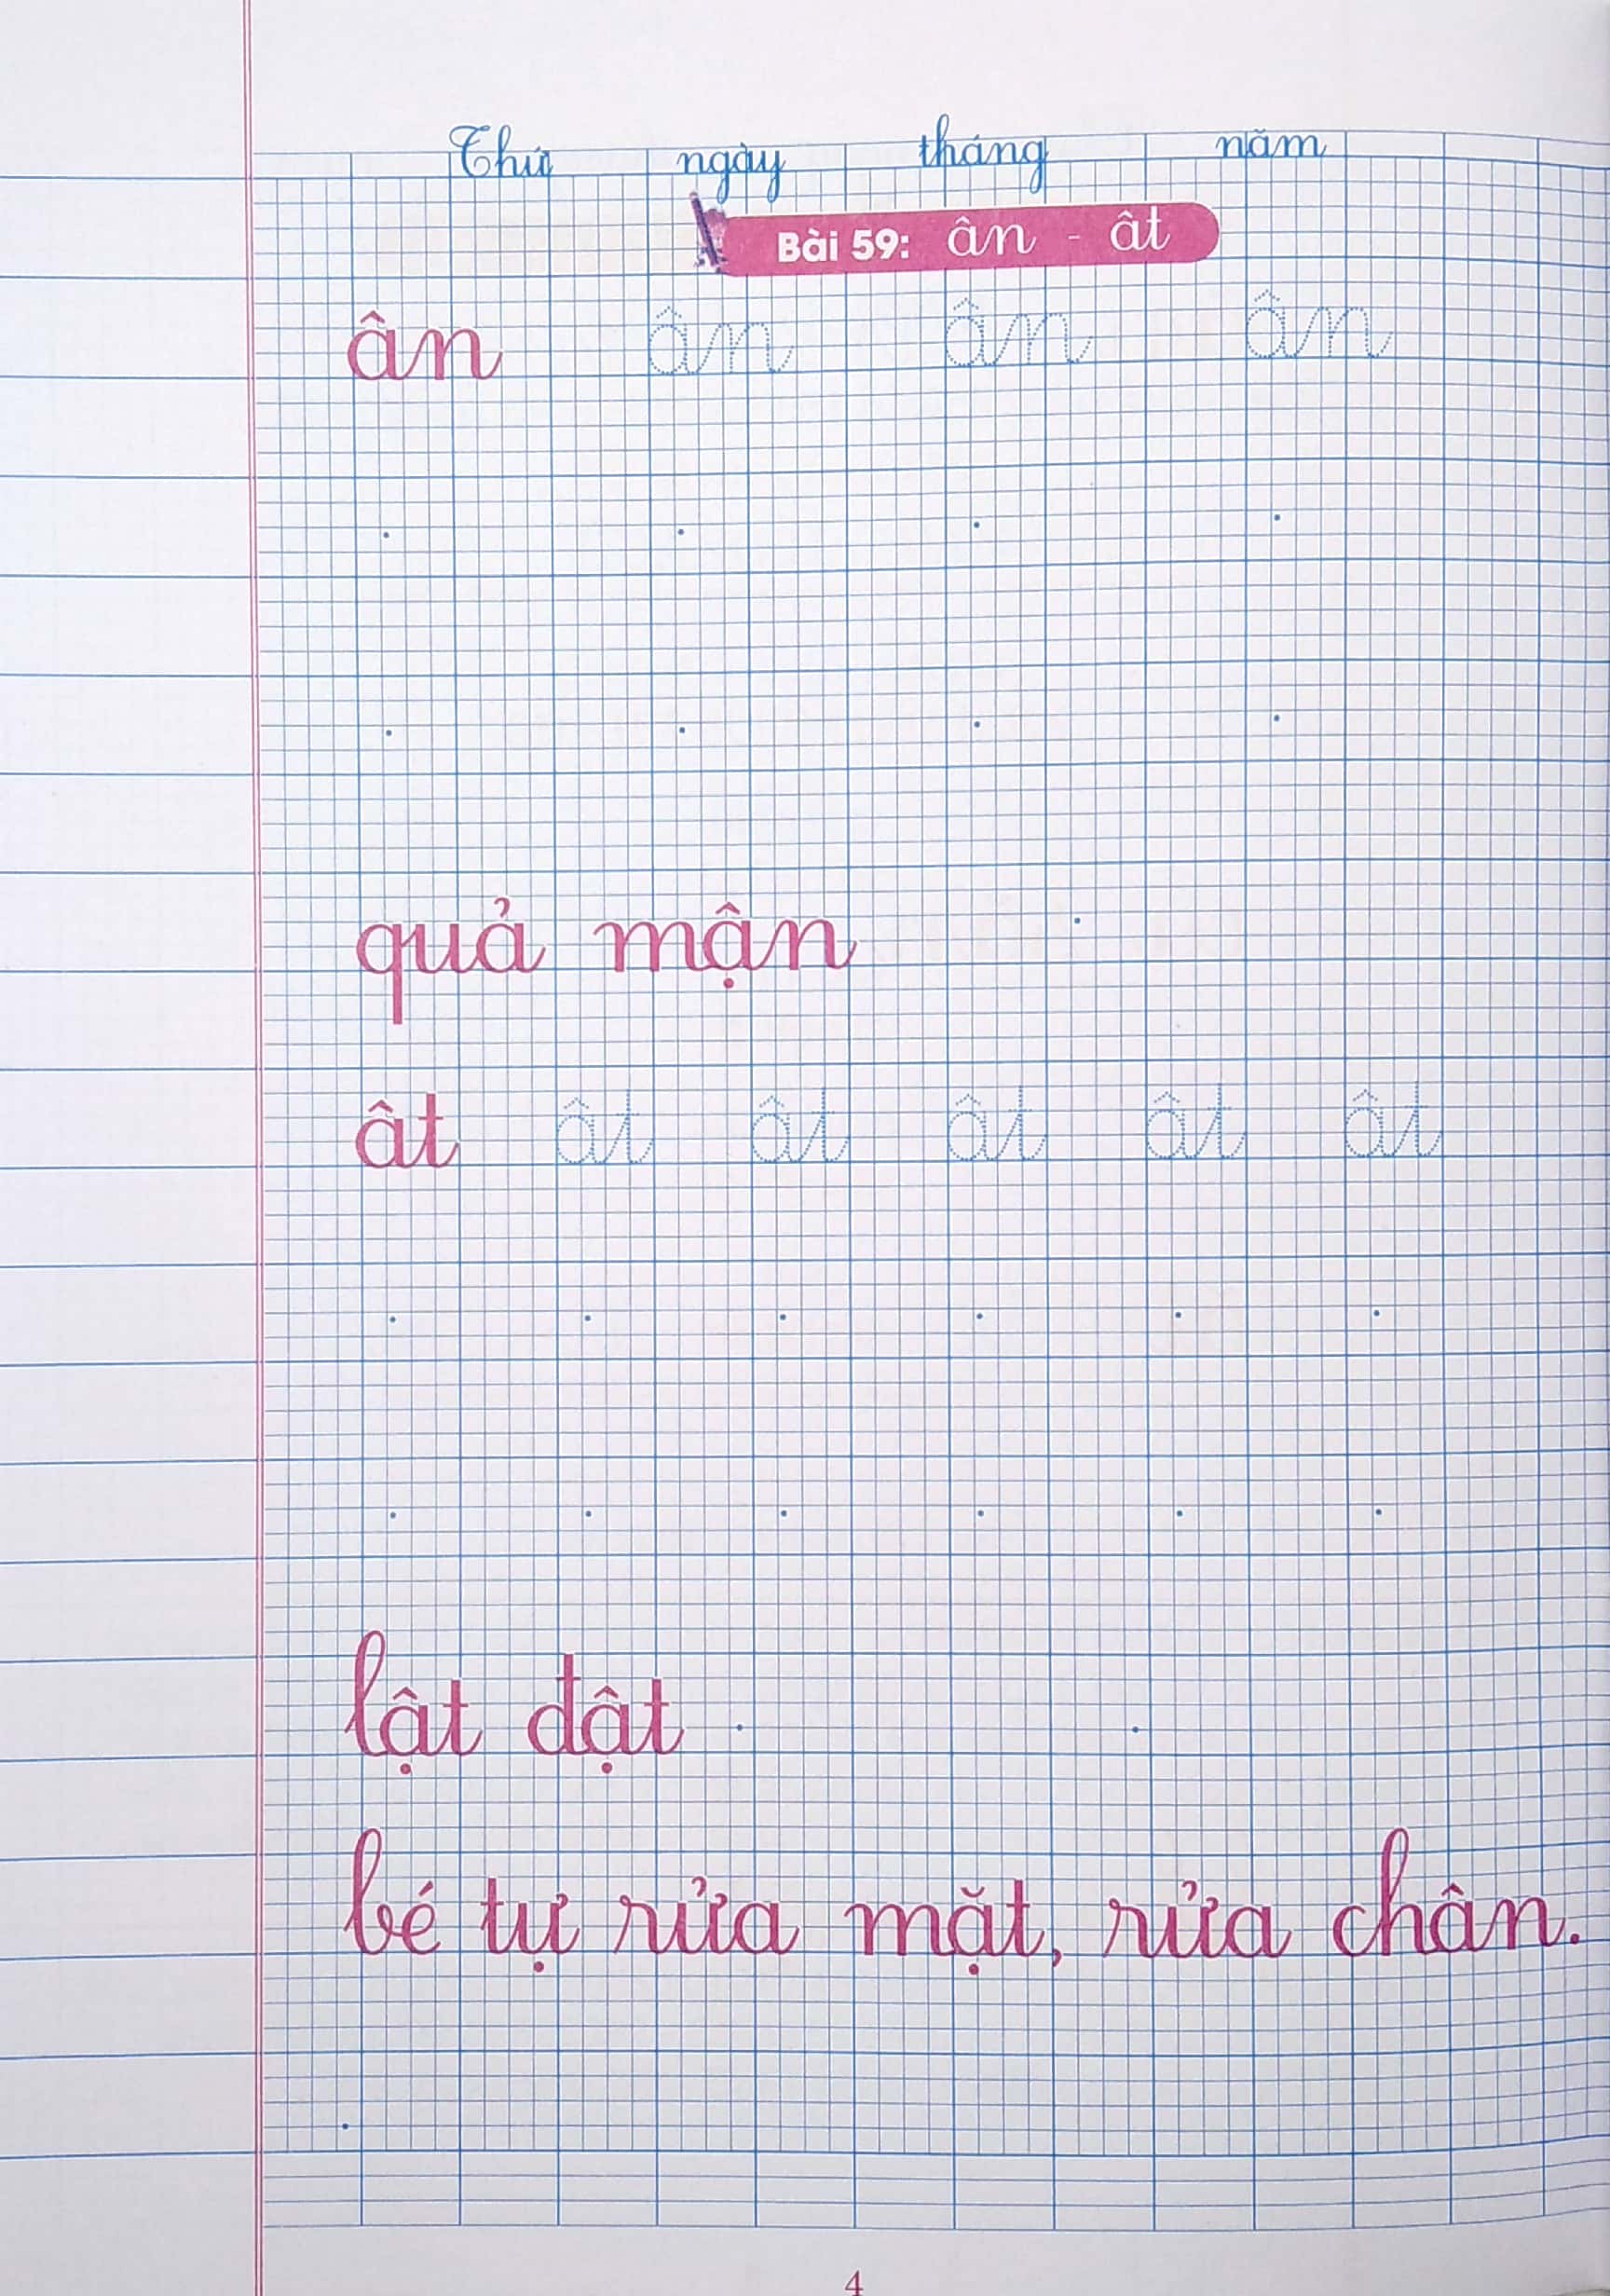 Thứ ngày tháng năm
Bài 59: ân - ât
ân ân ân ân
quả mận
ât ât ât ât ât ât
lật đật
bé tự rửa mặt, rửa chân.
4